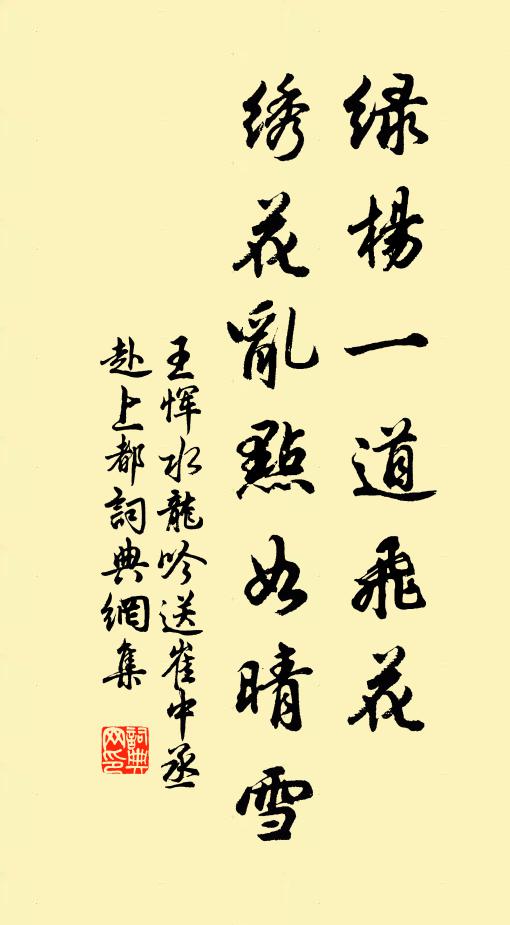 绿楊一道飛花
绣花亂點如晴雪
王恽水龍吟送崔中丞
赴上都詞典網集
詞典网印